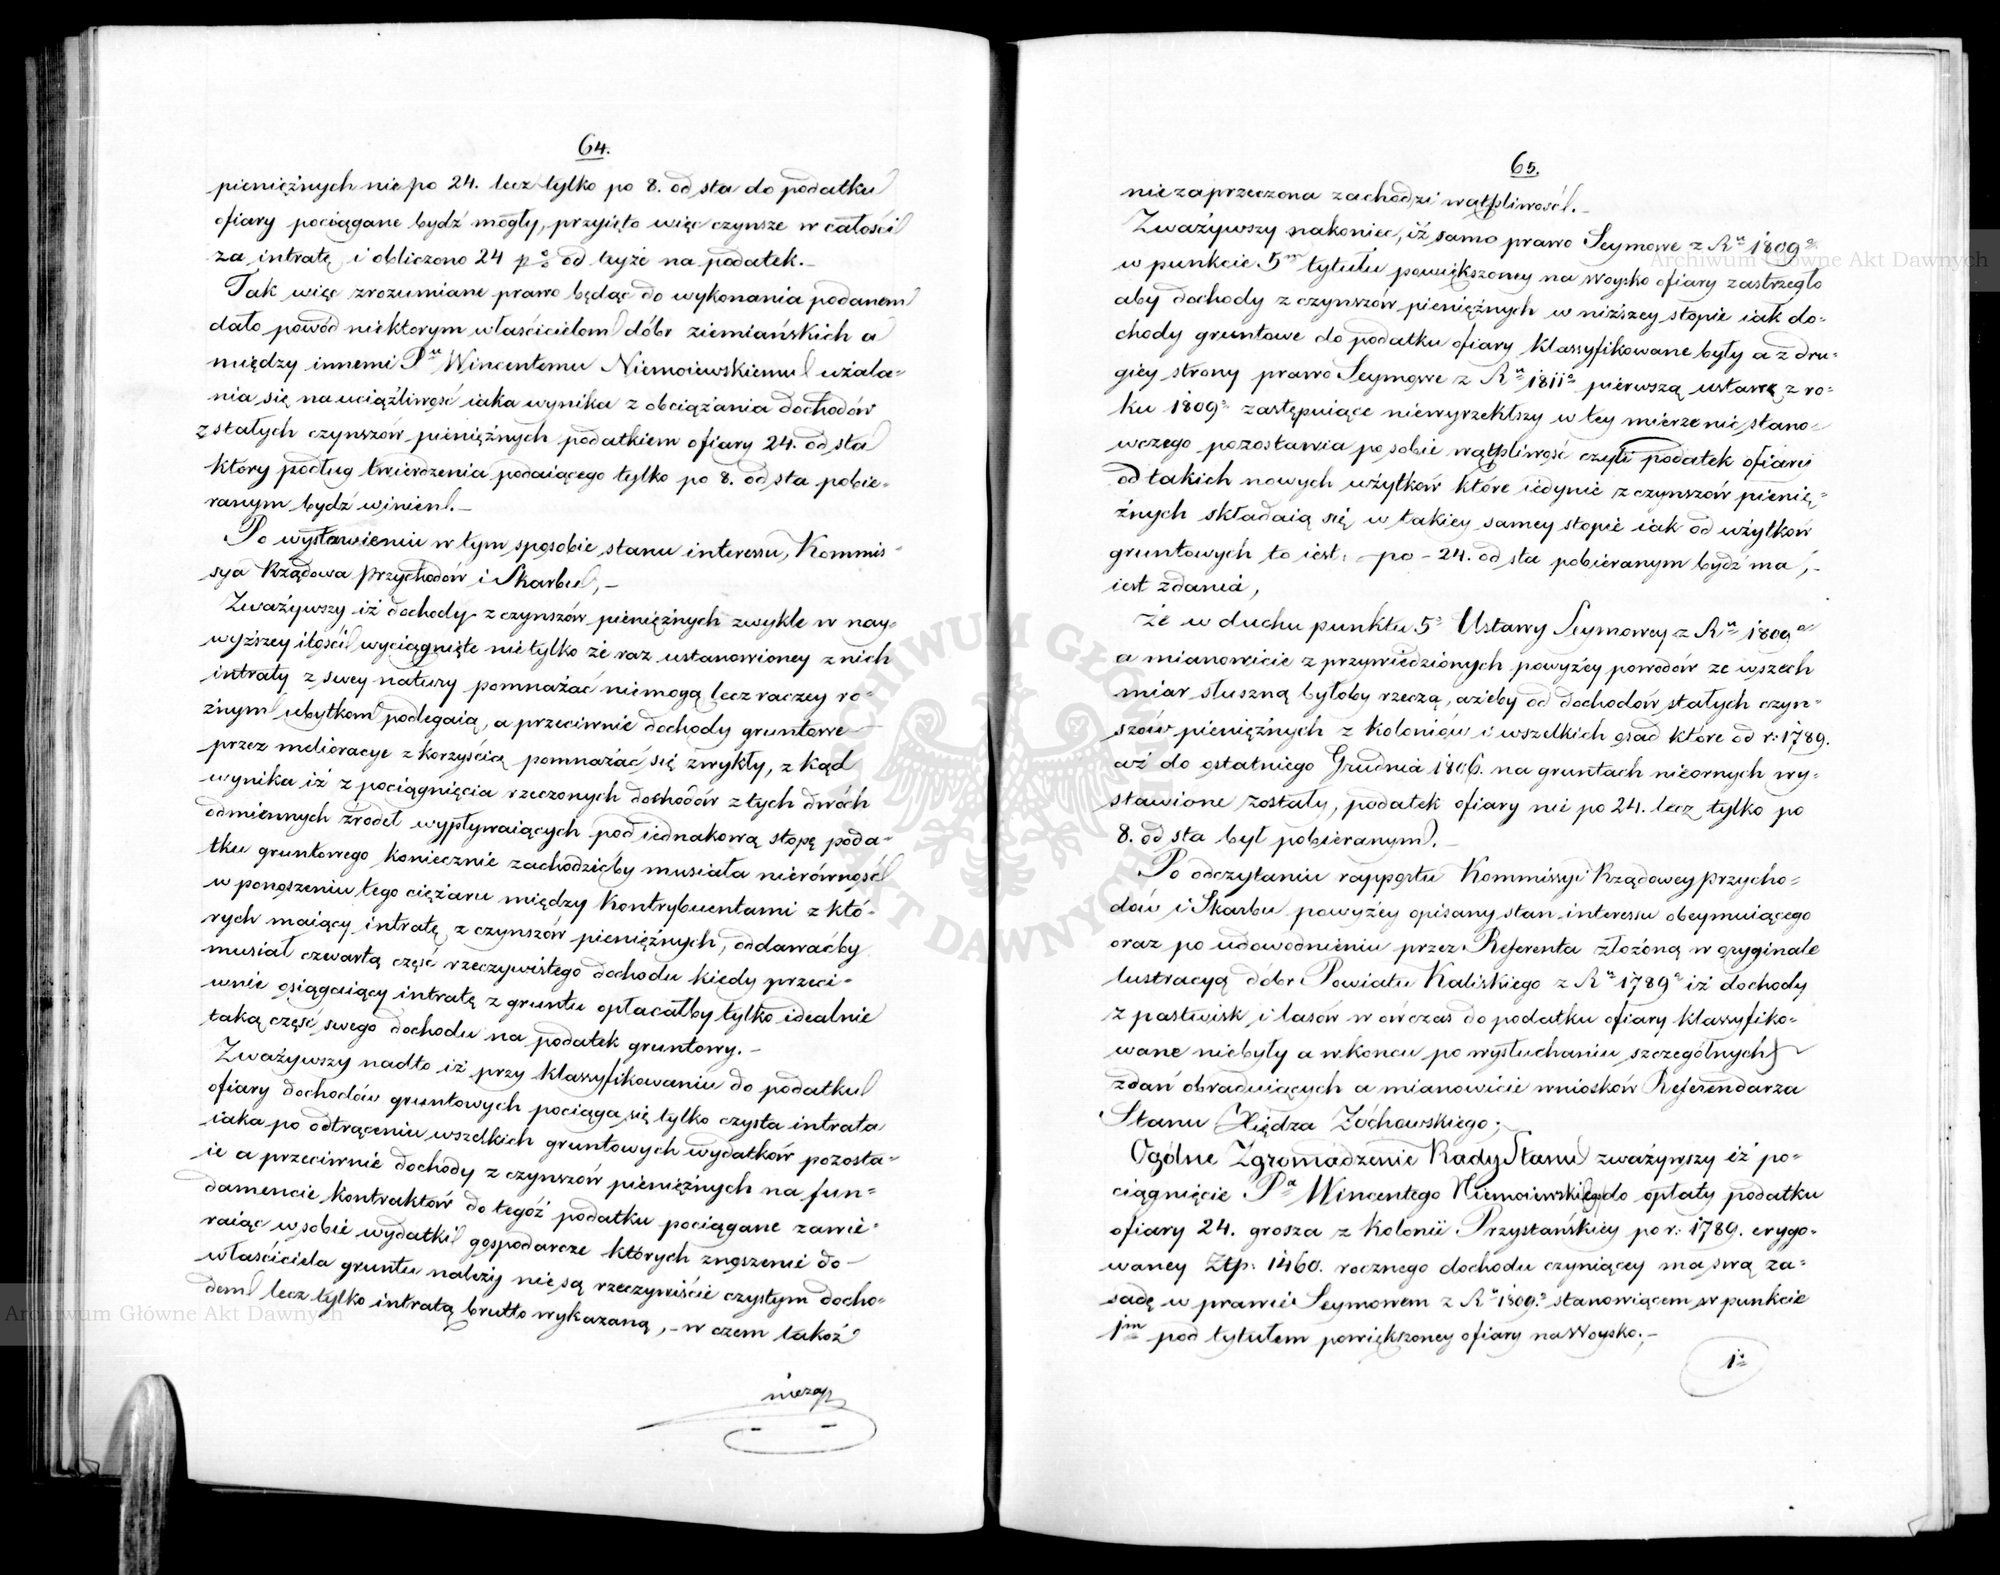 64.
pieniężnych nie po 24. lecz tylko po 8. od sta do podatku
ofiary pociągane bydź mogły, przyięto więc czynsze w całości
za intratę i obliczono 24 p% od teyże na podatek.–
Tak więc zrozumiane prawo będąc do wykonania podanem
dało powód niektorym właścicielom dóbr ziemiańskich a
między innemi Pu Wincentemu Niemoiewskiemu użala-
nia się na uciążliwość iaka wynika z obciążania dochodów
z stałych czynszów pieniężnych podatkiem ofiary 24. od sta
ktory podług twierdzenia podaiącego tylko po 8. od sta pobie-
ranym bydź winien.–
Po wystawieniu w tym sposobie stanu interessu, Kommis-
sya Rządowa Przychodów i Skarbu,–
Zważywszy iż dochody z czynszów pieniężnych zwykle w nay-
wyższey ilości wyciągnięte nie tylko że raz ustanowioney z nich
intraty z swey natury pomnażać niemogą lecz raczey ro-
żnym ubytkom podlegaią, a przeciwnie dochody gruntowe
przez melioracye z korzyścią pomnażać się zwykły, z kąd
wynika iż z pociągnięcia rzeczonych dochodów z tych dwóch
odmiennych źrodeł wypływaiących pod iednakową stopę poda-
tku gruntowego koniecznie zachodzićby musiała nierówność
w ponoszeniu tego ciężaru między kontrybuentami z któ-
rych maiący intratę z czynszów pieniężnych, oddawaćby
musiał czwartą część rzeczywistego dochodu kiedy przeci-
wnie osiągaiący intratę z gruntu opłacałby tylko idealnie
taką część swego dochodu na podatek gruntowy.–
Zważywszy nadto iż przy klassyfikowaniu do podatku
ofiary dochodów gruntowych pociąga się tylko czysta intrata
iaka po odtrąceniu wszelkich gruntowych wydatków pozosta-
ie a przeciwnie dochody z czynszów pieniężnych na fun-
damencie kontraktów do tegóż podatku pociągane zawie-
raiąc w sobie wydatki gospodarcze których znoszenie do
właściciela gruntu należy nie są rzeczywiście czystym docho-
dem lecz tylko intratą brutto wykazaną,– w czem takoż
niezap
65.
niezaprzeczona zachodzi wątpliwość.–
Zważywszy nakoniec, iż samo prawo Seymowe z Ru 1809o
w punkcie 5m tytułu powiększoney na woysko ofiary zastrzegło
aby dochody z czynszów pieniężnych w niższey stopie iak do-
chody gruntowe do podatku ofiary klassyfikowane były a z dru-
giey strony prawo Seymowe z Ru 1811o pierwszą ustawę z ro-
ku 1809o zastępuiące niewyrzekłszy w tey mierze nic stano-
wczego pozostawia po sobie wątpliwość czyli podatek ofiary
od takich nowych użytków które iedynie z czynszów pienię-
żnych składaią się w takiey samey stopie iak od użytków
gruntowych to iest: –po– 24. od sta pobieranym bydź ma,–
iest zdania,
że w duchu punktu 5o Ustawy Seymowey z Ru 1809o
a mianowicie z przywiedzionych powyżey powodów ze wszech
miar słuszną byłoby rzeczą, ażeby od dochodów stałych czyn-
szów pieniężnych z Koloniów i wszelkich osad które od r: 1789.
aż do ostatniego Grudnia 1806. na gruntach nieornych wy-
stawione zostały, podatek ofiary nie po 24. lecz tylko po
8. od sta był pobieranym.–
Po odczytaniu rapportu Kommissyi Rządowey Przycho-
dów i Skarbu powyżéy opisany stan interessu obeymuiącego
oraz po udowodnieniu przez Referenta złożóną w oryginale
lustracyą dóbr Powiatu Kaliskiego z Ru 1789o iż dochody
z pastwisk i lasów wówczas do podatku ofiary klassyfiko-
wane niebyły a w końcu po wysłuchaniu szczególnych
zdań obraduiących a mianowicie wniosków Referendarza
Stanu Xiędza Zochowskiego;
Ogólne Zgromadzenie Rady Stanu zważywszy iż po-
ciągnięcie Pa Wincentego Niemoiewskiego do opłaty podatku
ofiary 24. grosza z Kolonii Przystańskiéy po r: 1789. erygo-
waney Złp: 1460. rocznego dochodu czyniącey ma swą za-
sadę w prawie Seymowem z Ru 1809o stanowiącem w punkcie
1m pod tytułem powiększoney ofiary na Woysko.–
1o
Archiwum Główne Akt Dawnych
Archiwum Główne Akt Dawnych
ARCHIWUM GŁÓWNE AKT DAWNYCH